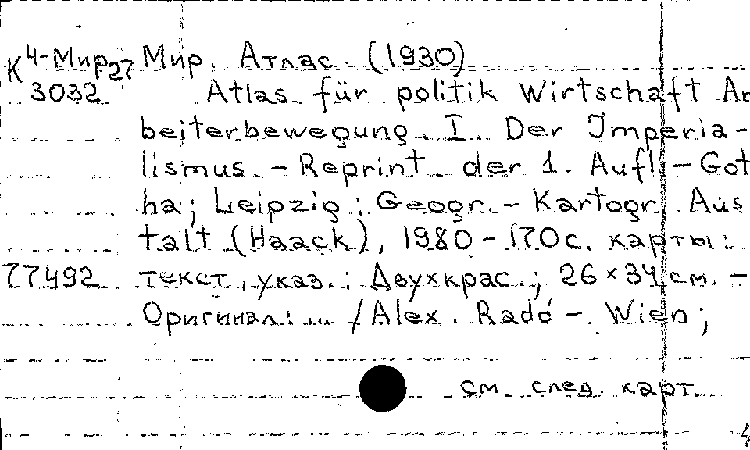 К 4-Мир 27 Мир. Атлас. (1930)
3032 Atlas für politik Wirtschaft Ar
beiterbewegung. I. Der Imperia-
lismus. - Reprint der 1. Aufl. - Got
ha; Leipzig: Geogr. - Kartogr. Aus
talt (Haack), 1980 - 170 с. карты:
77492 текст, указ.: Двухкрас.; 26×34 см. -
Оригинал: ... / Alex. Radó - Wien;
см. след. карт.